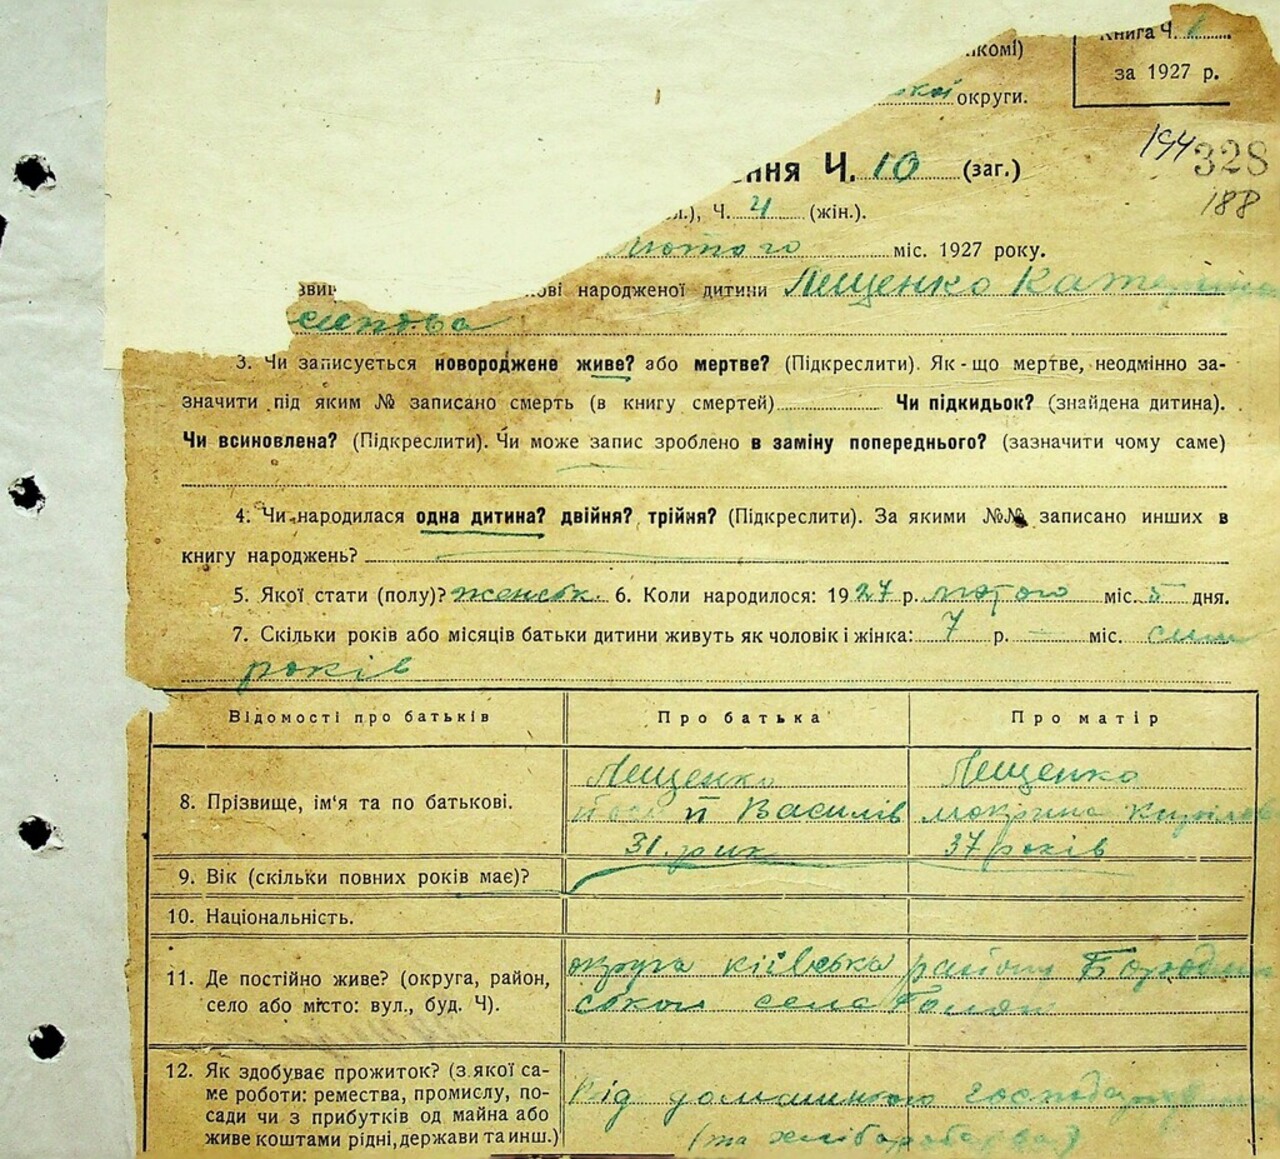 Книга Ч. 1
за 1927 р.
комі)
ської округи.
194
328
188
ння Ч. 10 (заг.)
Ч. 4 (жін.).
Лютого міс. 1927 року.
ові народженої дитини Лещенко Катерина
сипова
3. Чи записується новороджене живе? або мертве? (Підкреслити). Як-що мертве, неодмінно за-
значити під яким № записано смерть (в книгу смертей) Чи підкидьок? (знайдена дитина).
Чи всиновлена? (Підкреслити). Чи може запис зроблено в заміну попереднього? (зазначити чому саме)
4. Чи народилася одна дитина? двійня? трійня? (Підкреслити). За якими №№ записано инших в
книгу народжень?
5. Якої стати (полу)? женськ. 6. Коли народилося: 1927 р. лютого міс. 5 дня.
7. Скільки років або місяців батьки дитини живуть як чоловік і жінка: 7 р. — міс. сим
років
Відомості про батьків
Про батька
Про матір
8. Прізвище, ім'я та по батькові.
Лещенко
Василів
31 рик
Лещенко
мокрина
37 років
9. Вік (скільки повних років має)?
10. Національність.
11. Де постійно живе? (округа, район,
село або місто: вул., буд. Ч).
округа київська району Бородян
ського села
12. Як здобуває прожиток? (з якої са-
ме роботи: ремества, промислу, по-
сади чи з прибутків од майна або
живе коштами рідні, держави та инш.)
Від домашнього